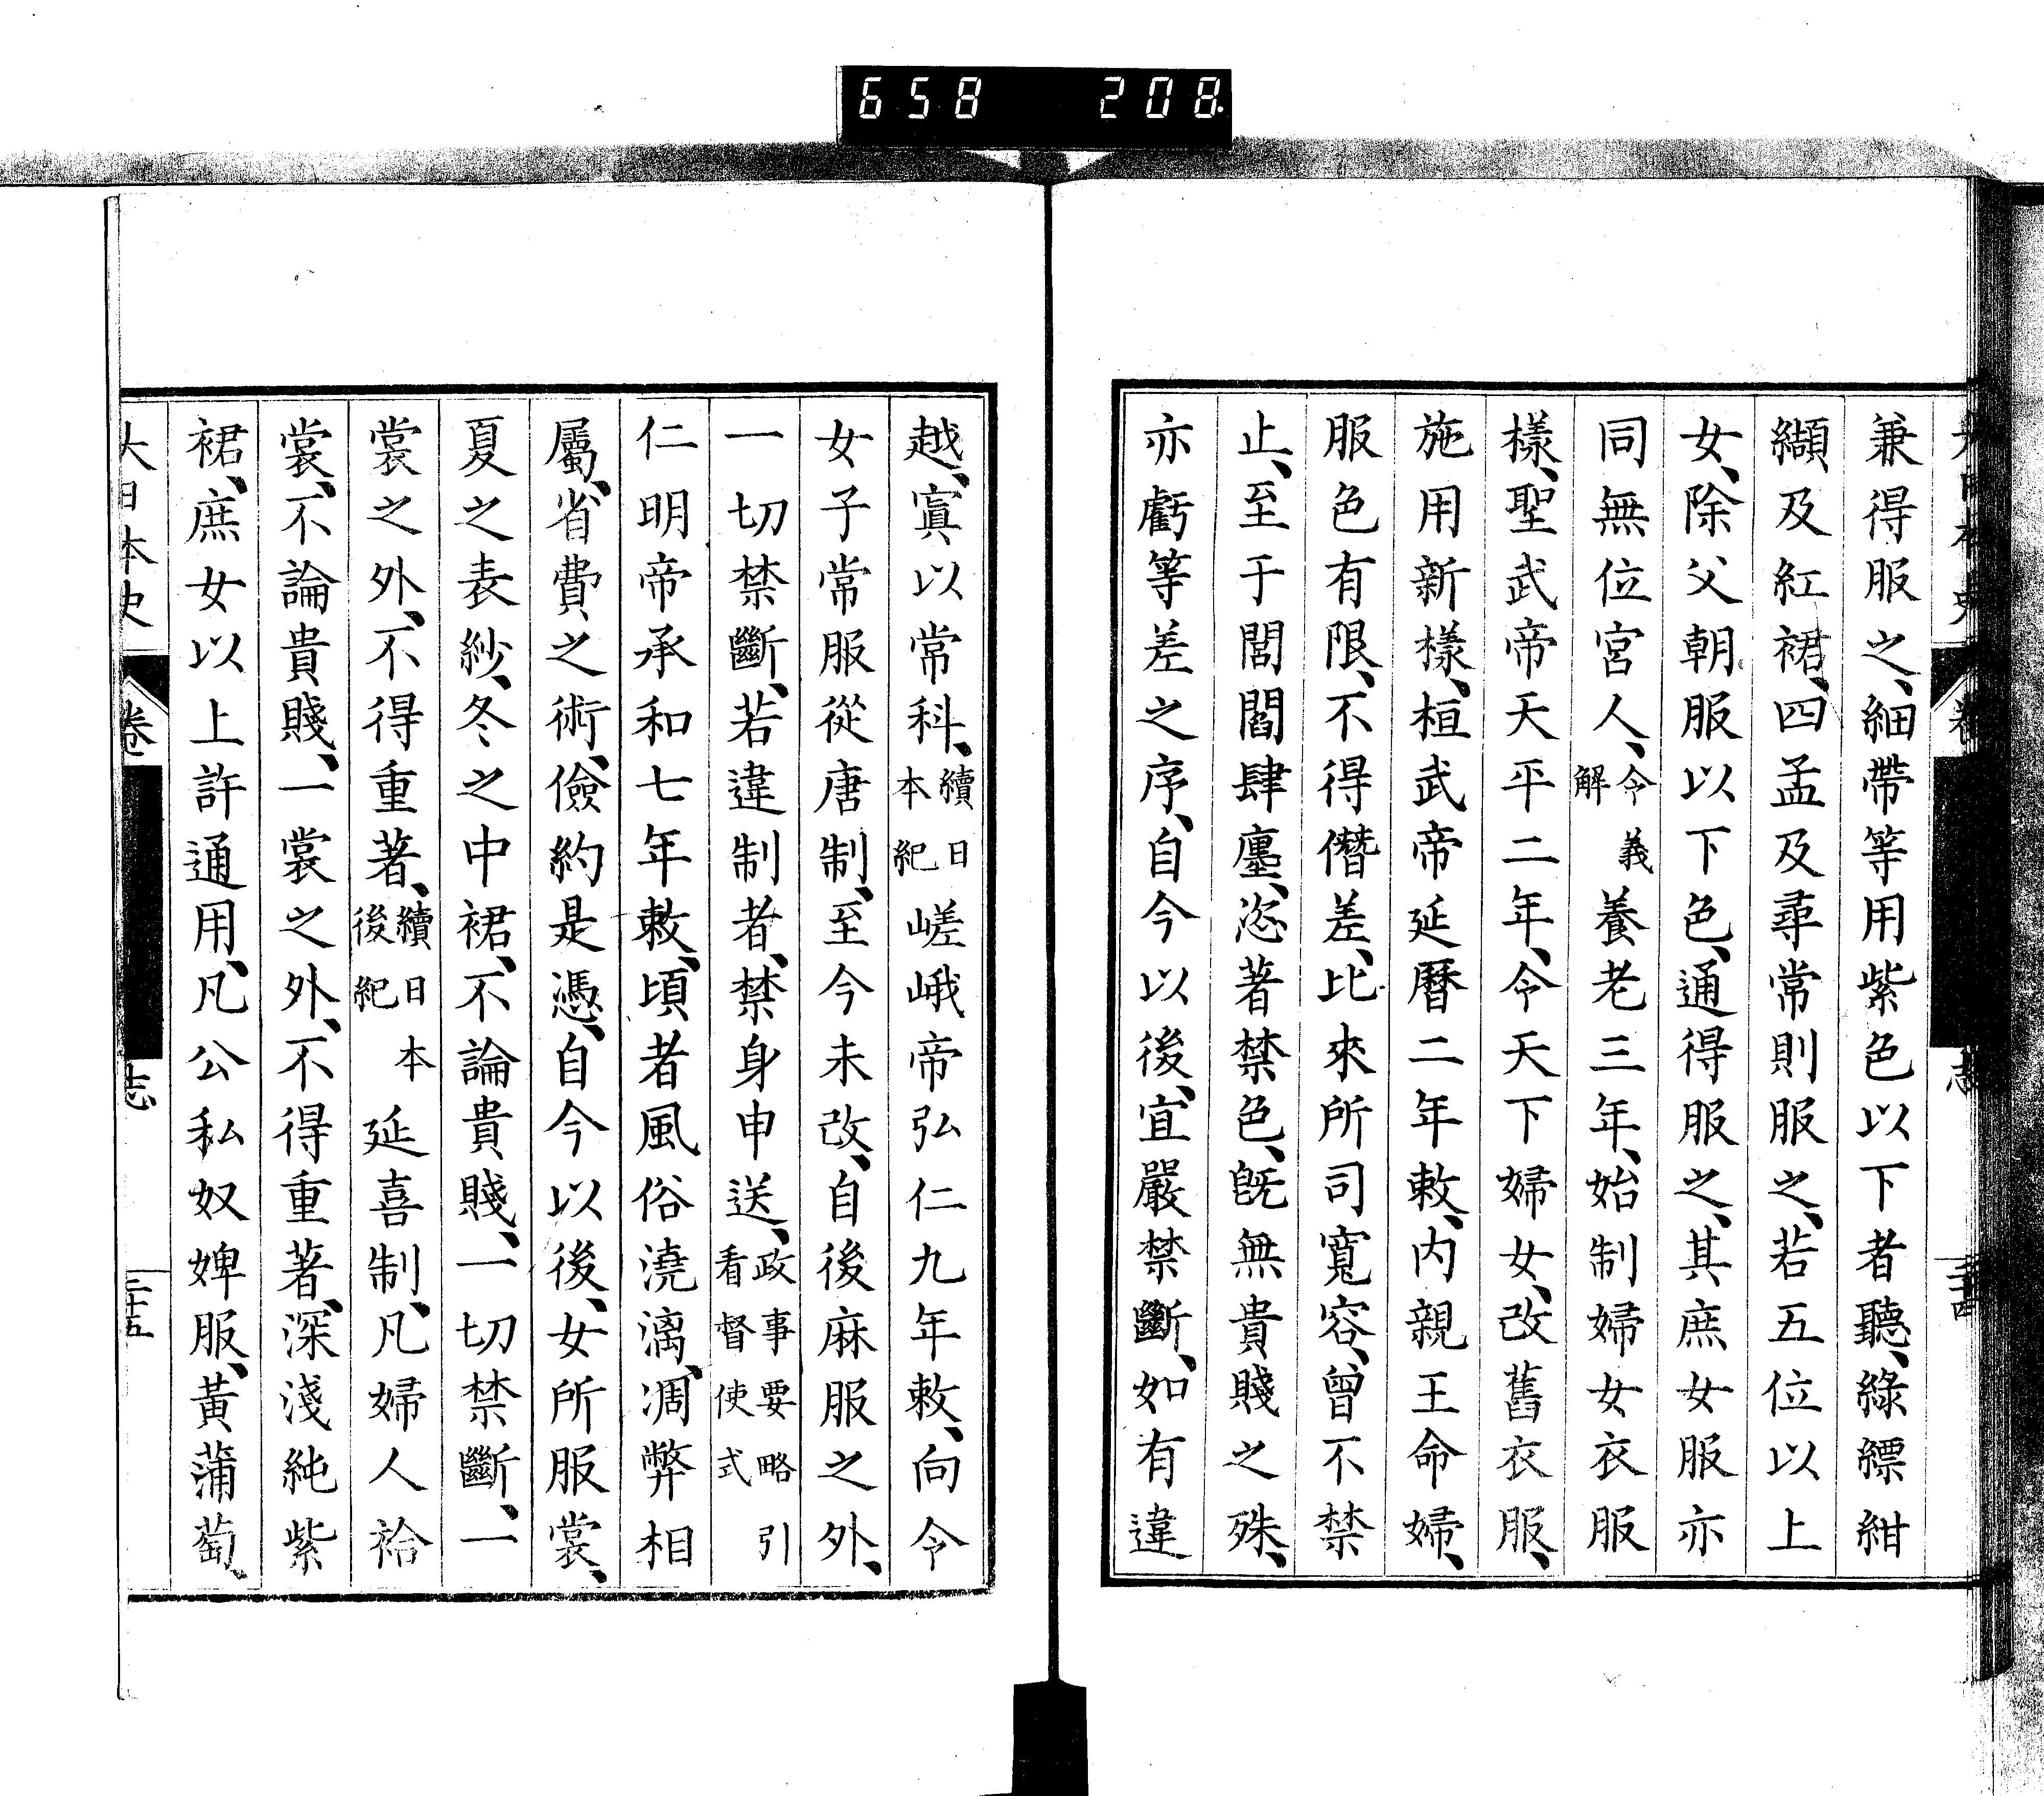 658 208
兼得服之、細帶等用紫色以下者聽、綠縹紺
纈及紅裙、四孟及尋常則服之、若五位以上
女、除父朝服以下色、通得服之、其庶女服亦
同無位宮人、令義解養老三年、始制婦女衣服
樣、聖武帝天平二年、令天下婦女、改舊衣服、
施用新樣、桓武帝延曆二年敕、內親王命婦、
服色有限、不得僭差、比來所司寬容、曾不禁
止、至于閭閻肆廛、恣著禁色、旣無貴賤之殊、
亦虧等差之序、自今以後、宜嚴禁斷、如有違
越、寘以常科、續日本紀嵯峨帝弘仁九年敕、向令
女子常服從唐制、至今未改、自後麻服之外、
一切禁斷、若違制者、禁身申送、政事要略引看督使式
仁明帝承和七年敕、頃者風俗澆漓、凋弊相
屬、省費之術、儉約是憑、自今以後、女所服裳、
夏之表紗、冬之中裙、不論貴賤、一切禁斷、一
裳之外、不得重著、續日本後紀延喜制、凡婦人袷
裳、不論貴賤、一裳之外、不得重著、深淺純紫
裙、庶女以上許通用、凡公私奴婢服、黃蒲萄、
大日本史 卷 志 三十五